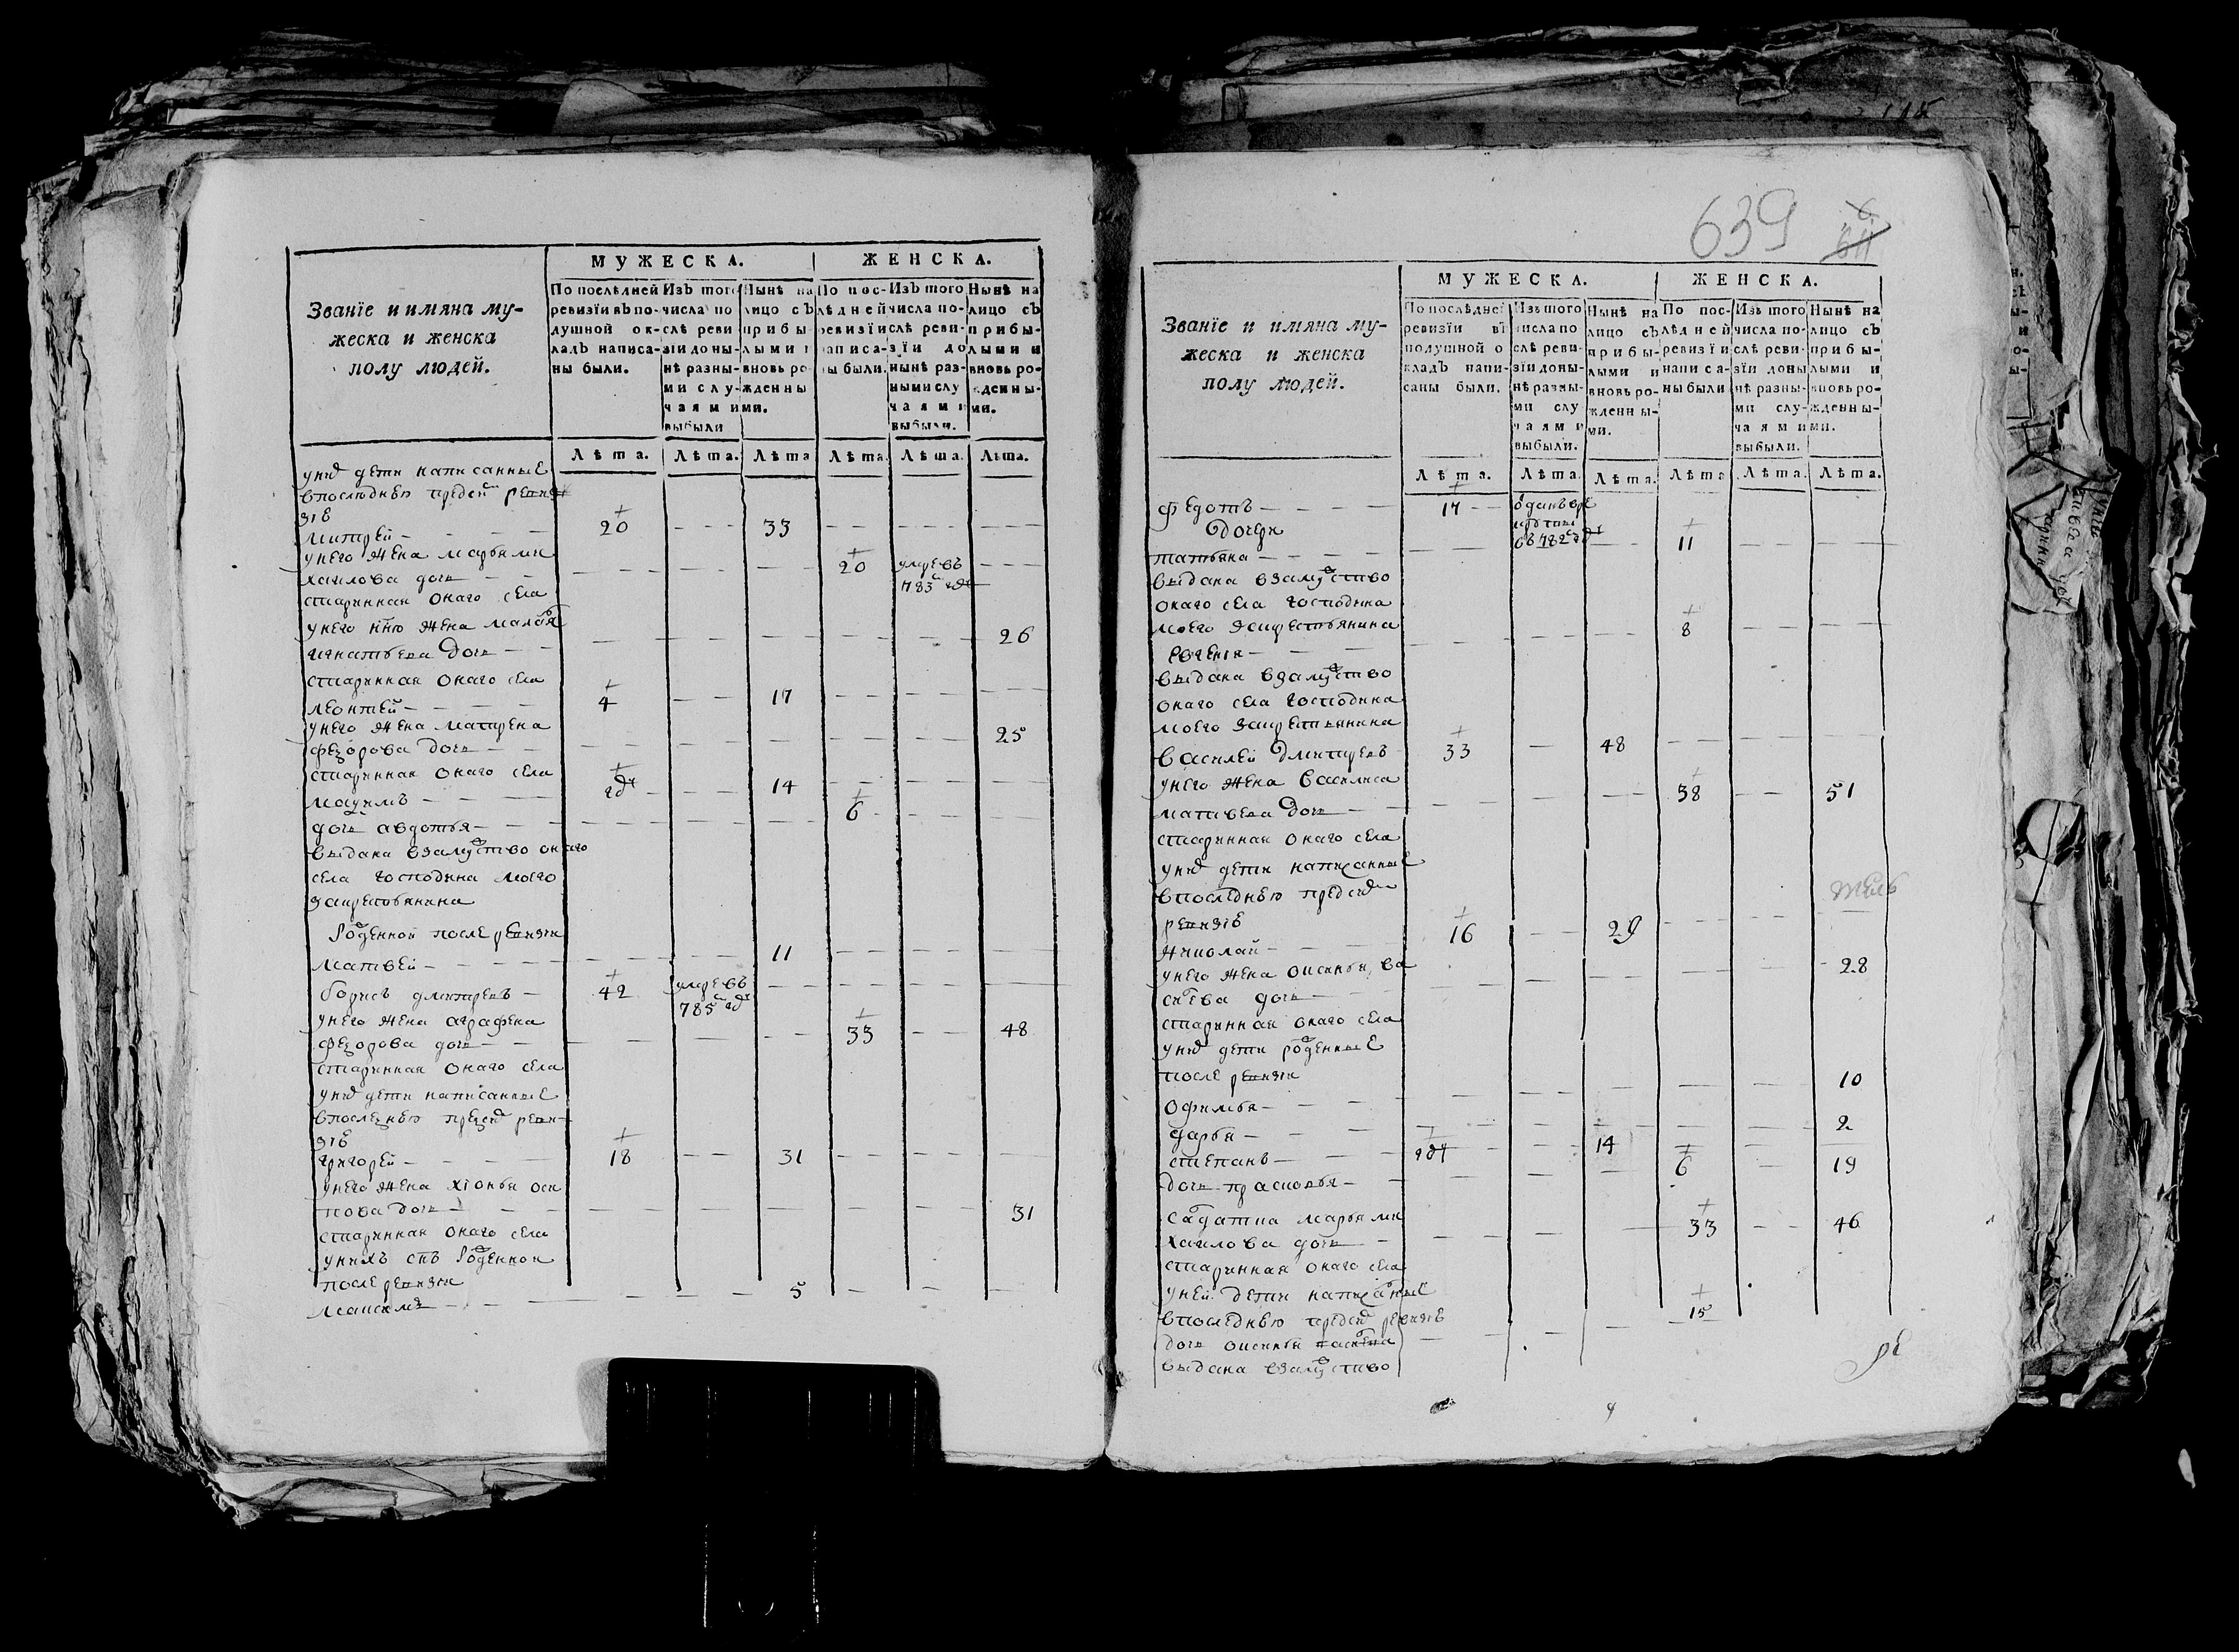 115
639
Званїе и имяна му-
жеска и женска
полу людей.
МУЖЕСКА.
ЖЕНСКА.
По послѣдней ревизїи въ по-
душной ок-
ладъ написа-
ны были.
Изъ того
числа по
слѣ реви
зїи доны-
нѣ разны-
ми слу-
чаями
выбыли
Нынѣ на
лицо съ
прибы-
лыми и
вновь ро-
жденны
ми.
По пос-
лѣдней
ревизїи
написа-
ны были.
Изъ того
числа по-
слѣ реви-
зїи до
нынѣ раз-
ными слу
чаями
выбыли.
Нынѣ на
лицо съ
прибы-
лыми и
вновь ро-
жденны-
ми.
Лѣта. Лѣта. Лѣта Лѣта. Лѣта. Лѣта.
у них дети написанные
впоследнею пред сим реви
зıе
митрей 20 33
унего жена марья ми
хаилова дочь 20 умре въ 783 годе
старинная онаго села
унего ныне жена малая
игнатьева дочь 26
старинная онаго села
леонтей 4 17
унего жена матрена
федорова дочь 25
старинная онаго села
14
дочь авдотья 6
выдана взамуство онаго
села господина моего
закрестьянина
рожденной после ревизи
матвей 11
борисъ дмитревъ 42 умре въ 785 годе
унего жена аграфена
федорова дочь 33 48
старинная онаго села
у них дети написанные
впоследнею пред сим реви
зıе
григорей 18 31
унего жена хıонья оси
пова дочь 31
старинная онаго села
унихъ снъ рожденной
после ревизи
максимъ 5
Званїе и имяна му-
жеска и женска
полу людей.
МУЖЕСКА.
ЖЕНСКА.
По послѣдней
ревизїи въ
подушной о
кладъ напи-
саны были.
Изъ того
числа по
слѣ реви-
зїи доны-
нѣ разны-
ми слу
чаями
выбыли.
Нынѣ на
лицо съ
прибы-
лыми и
вновь ро-
жденны-
ми.
По пос-
лѣдней
ревизїи
написа-
ны были
Изъ того
числа по-
слѣ реви-
зїи доны
нѣ разны-
ми слу-
чаями
выбыли.
Нынѣ на
лицо съ
прибы-
лыми и
вновь ро-
жденны-
ми.
Лѣта. Лѣта. Лѣта. Лѣта Лѣта. Лѣта.
федотъ 17 отданъ в ре круты в 782 годе
дочери
татьяна 11
выдана взамуство
онаго села господина
моего закрестьянина
евгенıя 8
выдана взамуство
онаго села господина
моего закрестьянина
василей дмитревъ 33 48
унего жена василиса
матвева дочь 38 51
старинная онаго села
у них дети написанные
впоследнею пред сим
ревизıе
николай 16 29
унего жена оксинья ва
дочь 28
старинная онаго села
у них дети рожденные
после ревизи
офимья 10
дарья 2
степанъ год 14
дочь прасковья 6 19
салдатка марья ми
хаилова дочь 33 46
старинная онаго села
уней дети написаные
впоследнею пред сим ревизıе
дочь оксинья 15
выдана взамуство